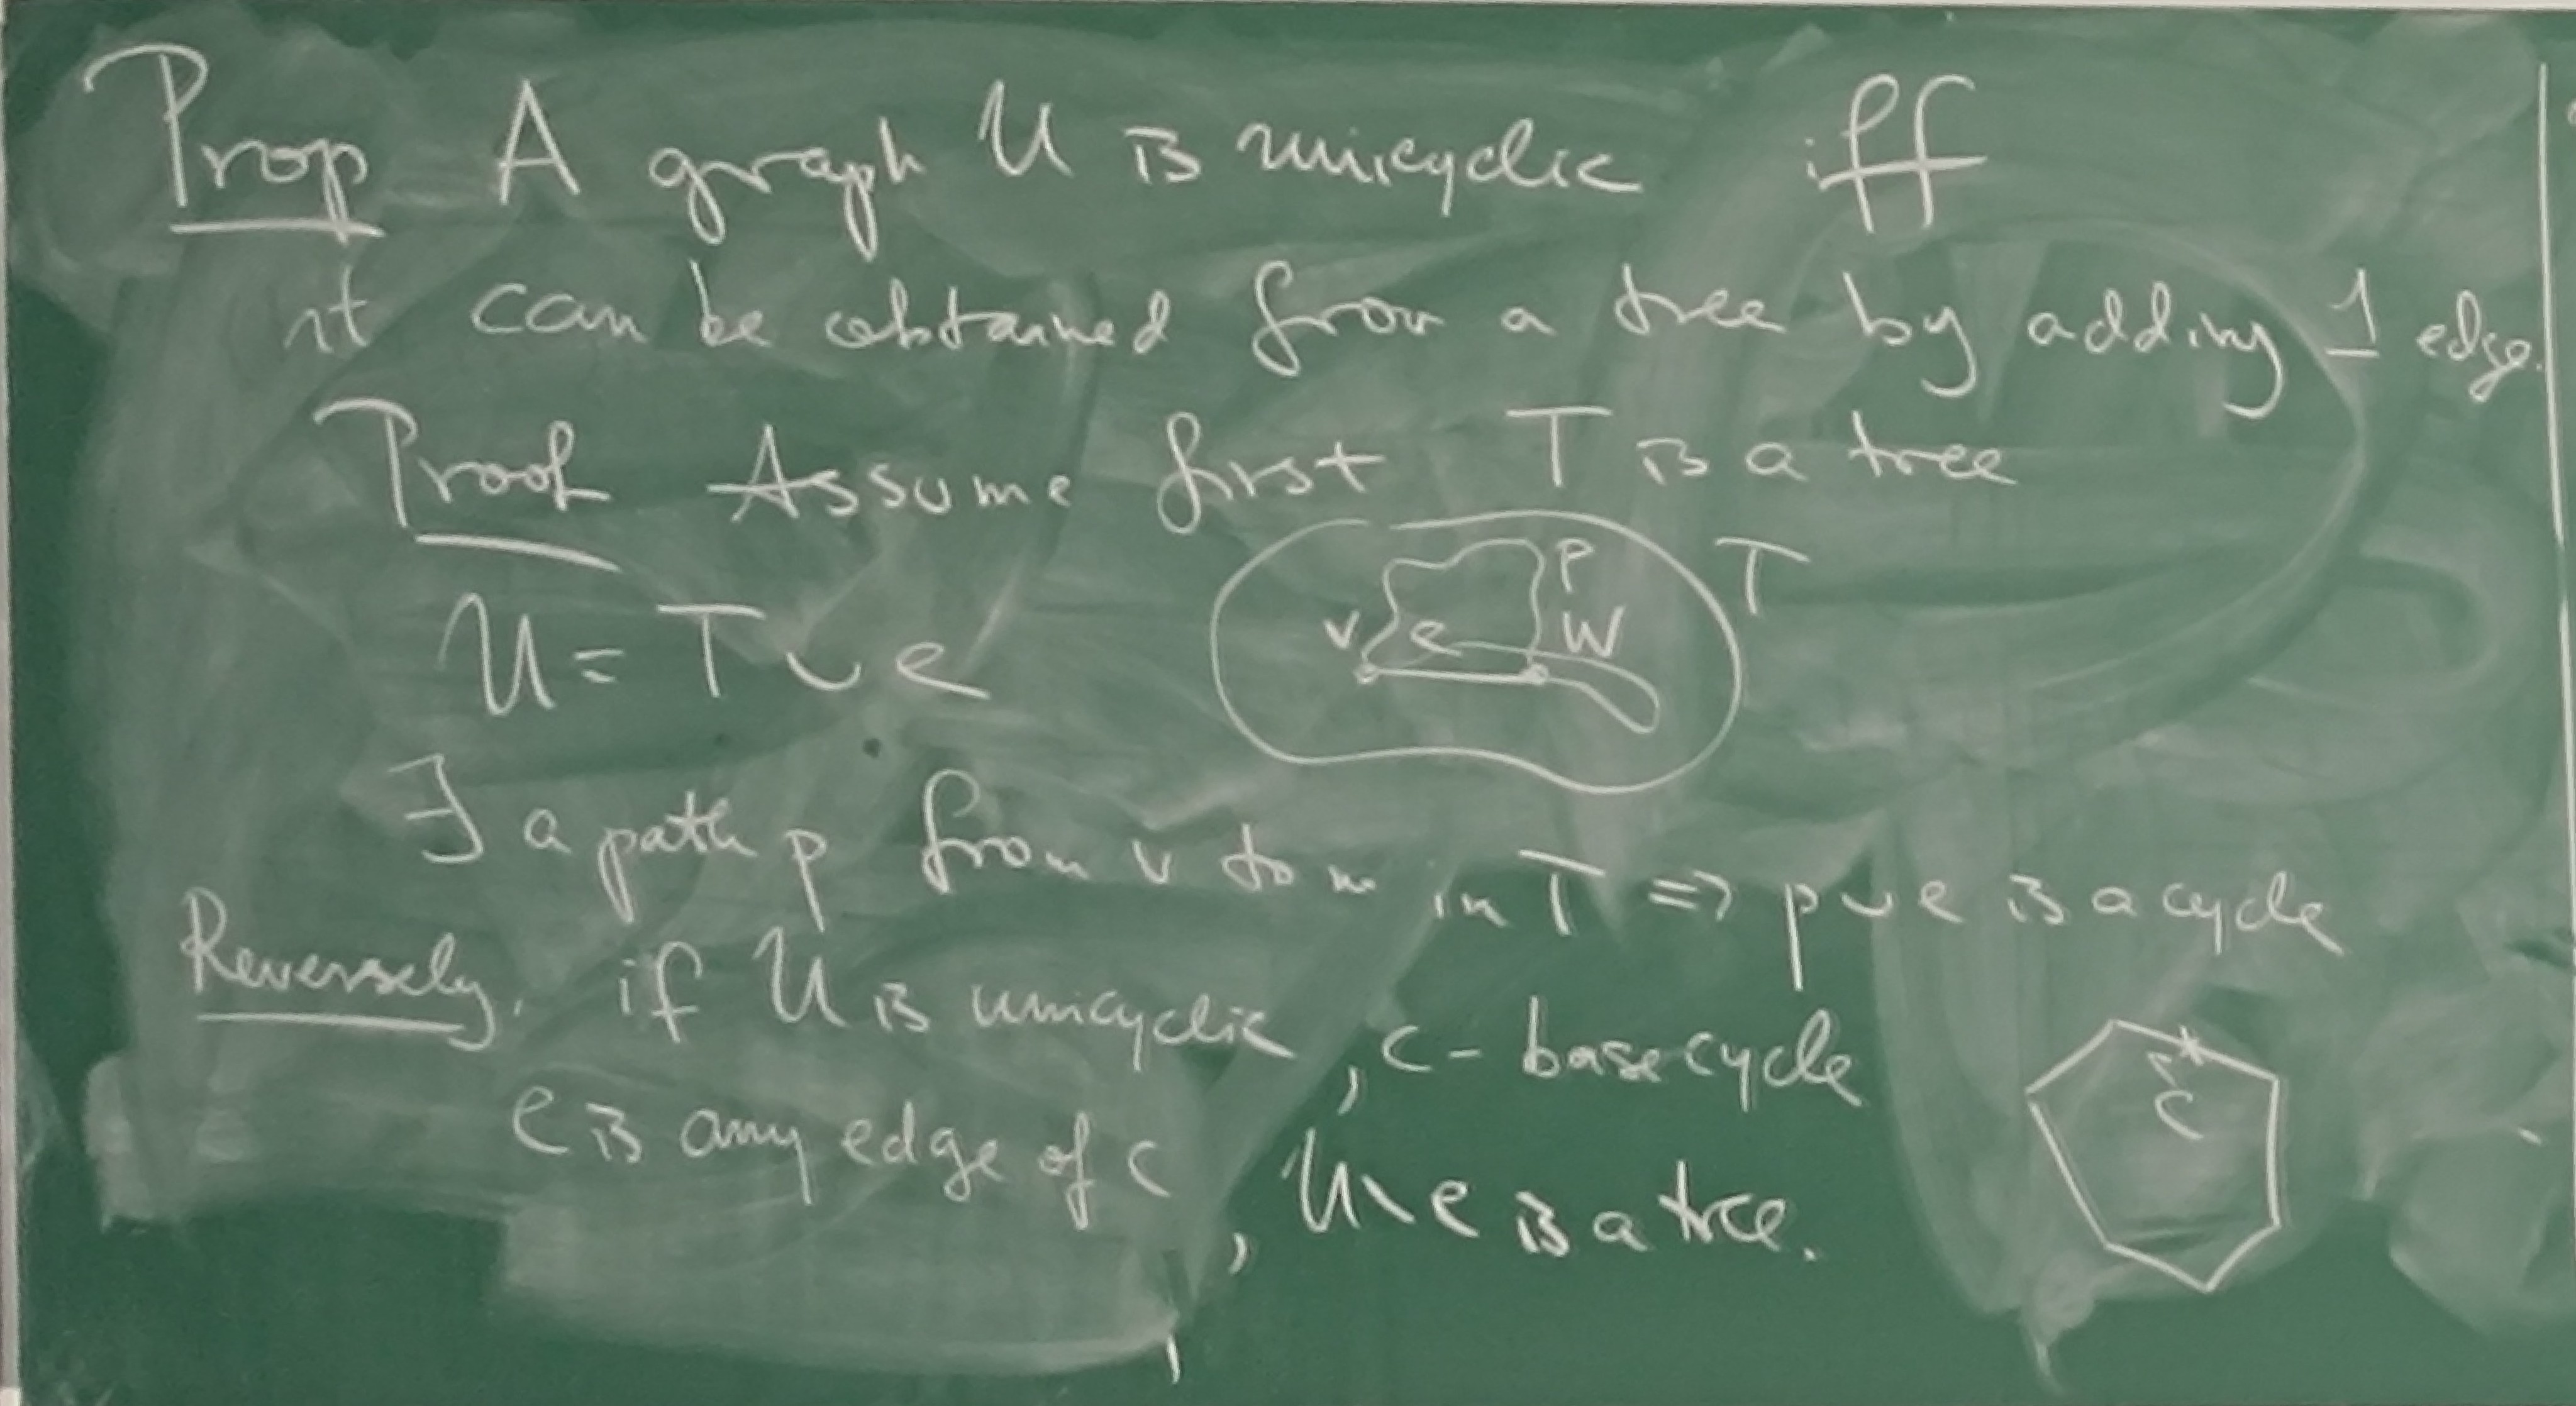 Prop A graph U is unicyclic iff
it can be obtained from a tree by adding 1 edge.
Proof Assume first T is a tree
U = T ∪ e
P
T
v e w
∃ a path p from v to w in T => p ∪ e is a cycle
Reversely, if U is unicyclic, c - base cycle
e is any edge of c, U \ e is a tree.
C